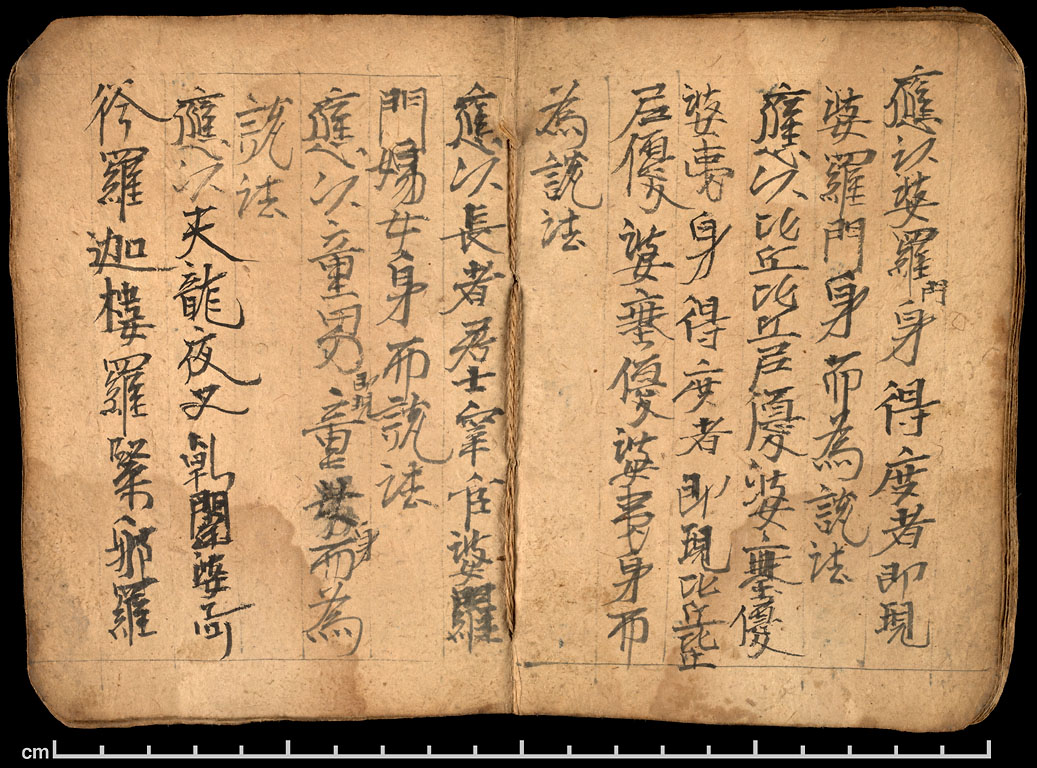 應以婆羅門身得度者即現
婆羅門身而為說法
應以比丘比丘尼優婆塞優
婆夷身得度者即現比丘比丘
尼優婆塞優婆夷身而
為說法
應以長者居士宰官婆羅
門婦女身而說法
應以童男即現童男身而為
說法
應以天龍夜叉乹闥婆阿
修羅迦樓羅緊那羅